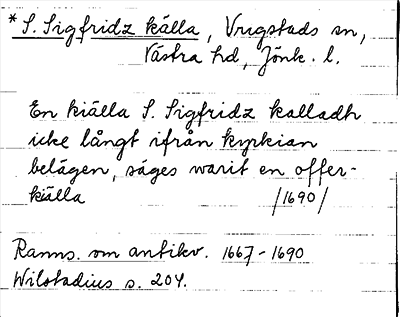 * S. Sigfridz källa, Vrigstads sn,
Västra hd, Jönk. l.
En kiälla S. Sigfridz kalladh
icke långt ifrån kyrkian
belägen, säges warit en offer-
kiälla /1690/
Ranns. om antikv. 1667-1690
Wilstadius s. 204.